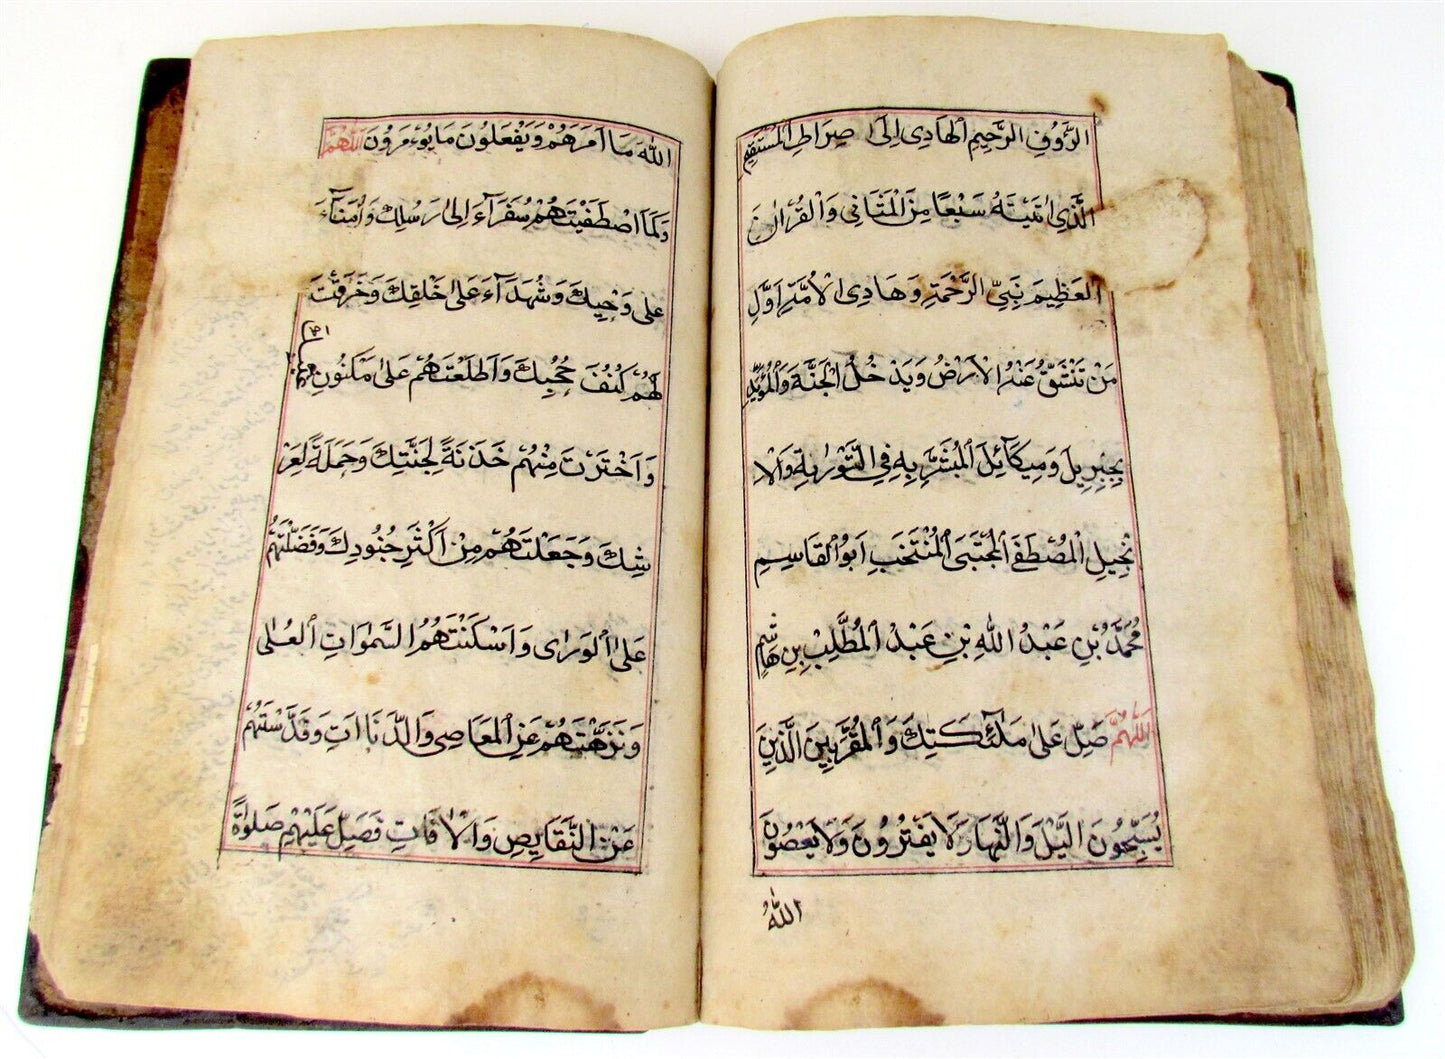 الرَّؤُفِ الرَّحِيمِ الْهَادِى اِلَى صِرَاطِ الْمُسْتَقِيمِ
الَّذِى اٰتَيْتَهُ سَبْعًا مِنَ الْمَثَانِى وَالْقُرْاٰنَ
الْعَظِيمَ نَبِىِّ الرَّحْمَةِ وَهَادِى الْاُمَّةِ اَوَّلِ
مَنْ تَنْشَقُّ عَنْهُ الْاَرْضُ وَيَدْخُلُ الْجَنَّةَ وَالْمُؤَيَّدِ
بِجِبْرِيلَ وَمِيكَآئِلَ الْمُبَشَّرِ بِهِ فِى التَّوْرٰيةِ وَالْا
نْجِيلِ الْمُصْطَفَى الْمُجْتَبَى الْمُنْتَخَبِ اَبُو الْقَاسِمِ
مُحَمَّدُ بْنِ عَبْدُ اللهِ بْنِ عَبْدُ الْمُطَّلِبْ بِنِ هَاشِمِ
اَللّٰهُمَّ صَلِّ عَلٰى مَلٰٓئِكَتِكَ وَالْمُقَرَّبِينَ الَّذِينَ
يُسَبِّحُونَ الَّيْلَ وَالنَّهَارَ لَا يَفْتُرُونَ وَلَا يَعْصُونَ
اللهَ
اللهَ مَا اَمَرَهُمْ وَيَفْعَلُونَ مَا يُؤْمَرُونَ اَللّٰهُمَّ
وَكَمَا اصْطَفَيْتَهُمْ سُفَرَآءَ اِلٰى رُسُلِكَ وَاُمَنَآءَ
عَلٰى وَحْيِكَ وَشُهَدَآءَ عَلٰى خَلْقِكَ وَخَرَقْتَ
لَهُمْ كُنُفَ حُجُبِكَ وَاَطْلَعْتَهُمْ عَلٰى مَكْنُونِ
وَاخْتَرْتَ مِنْهُمْ خَزَنَةً لِجَنَّتِكَ وَحَمَلَةً لِعَرْ
شِكَ وَجَعَلْتَهُمْ مِنْ اَكْثَرِ جُنُودِكَ وَفَضَّلْتَهُمْ
عَلَى الْوَرٰى وَاَسْكَنْتَهُمُ السَّمٰوَاتِ الْعُلٰى
وَنَزَّهْتَهُمْ عَنِ الْمَعَاصِى وَالدَّنَاآتِ وَقَدَّسْتَهُمْ
عَنْ النَّقَايِصِ وَالْاٰفَاتِ فَصَلِّ عَلَيْهِمْ صَلٰوةً